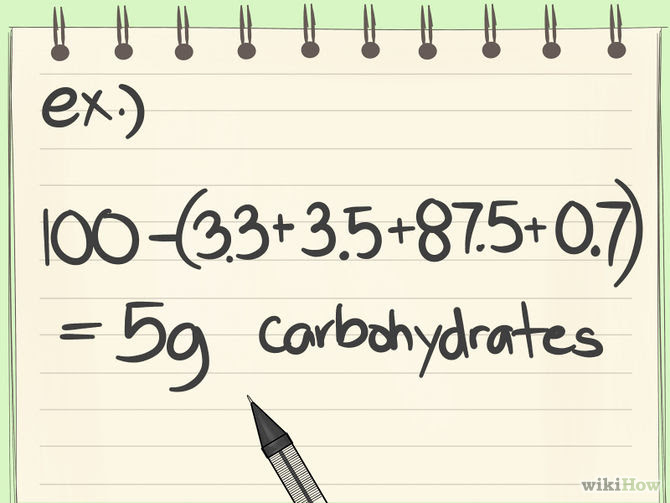 ex.)
100-(3.3+3.5+87.5+0.7)
= 5g carbohydrates
wikiHow